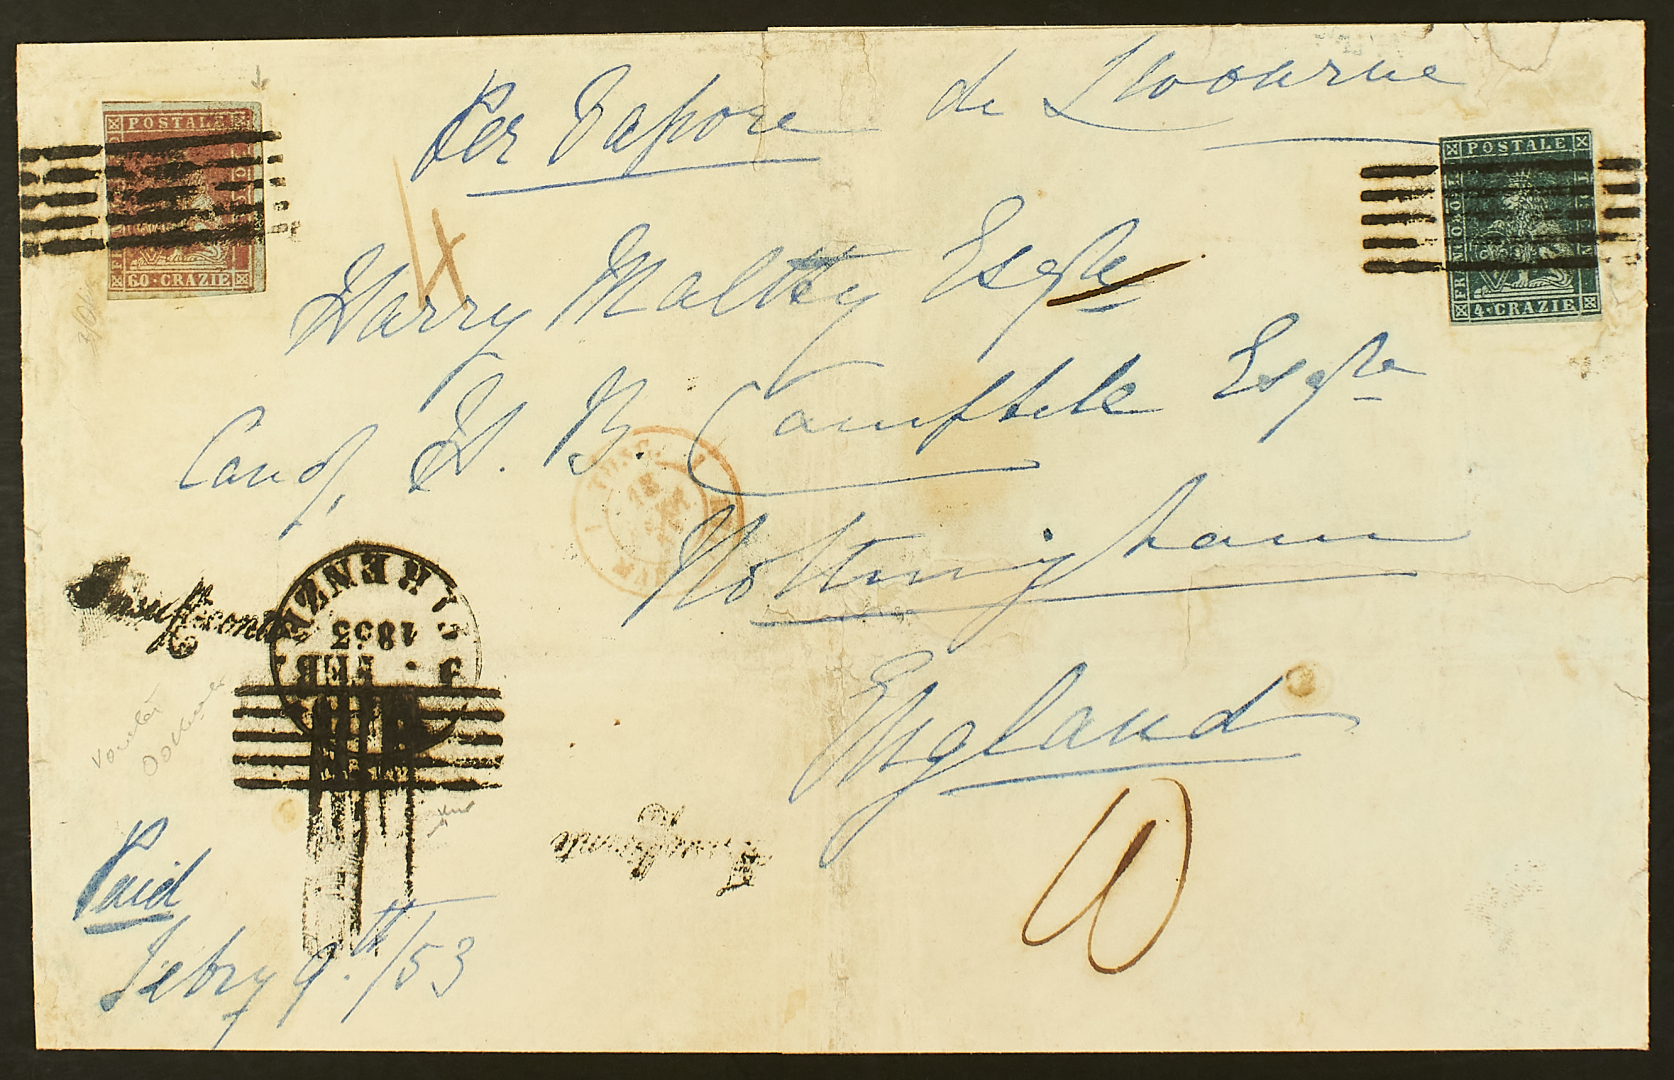 Per Vapore de Livourne
POSTALE
60·CRAZIE
POSTALE
FRANCOBOL
4·CRAZIE
4
Harry Maltby Esqre
Care of H. B. Campbell Esqre
Nottingham
England
TOSC.
18
Insufficiente
FIRENZE
1853
9. FEB
Insufficiente
Paid
Febry 9.th/53